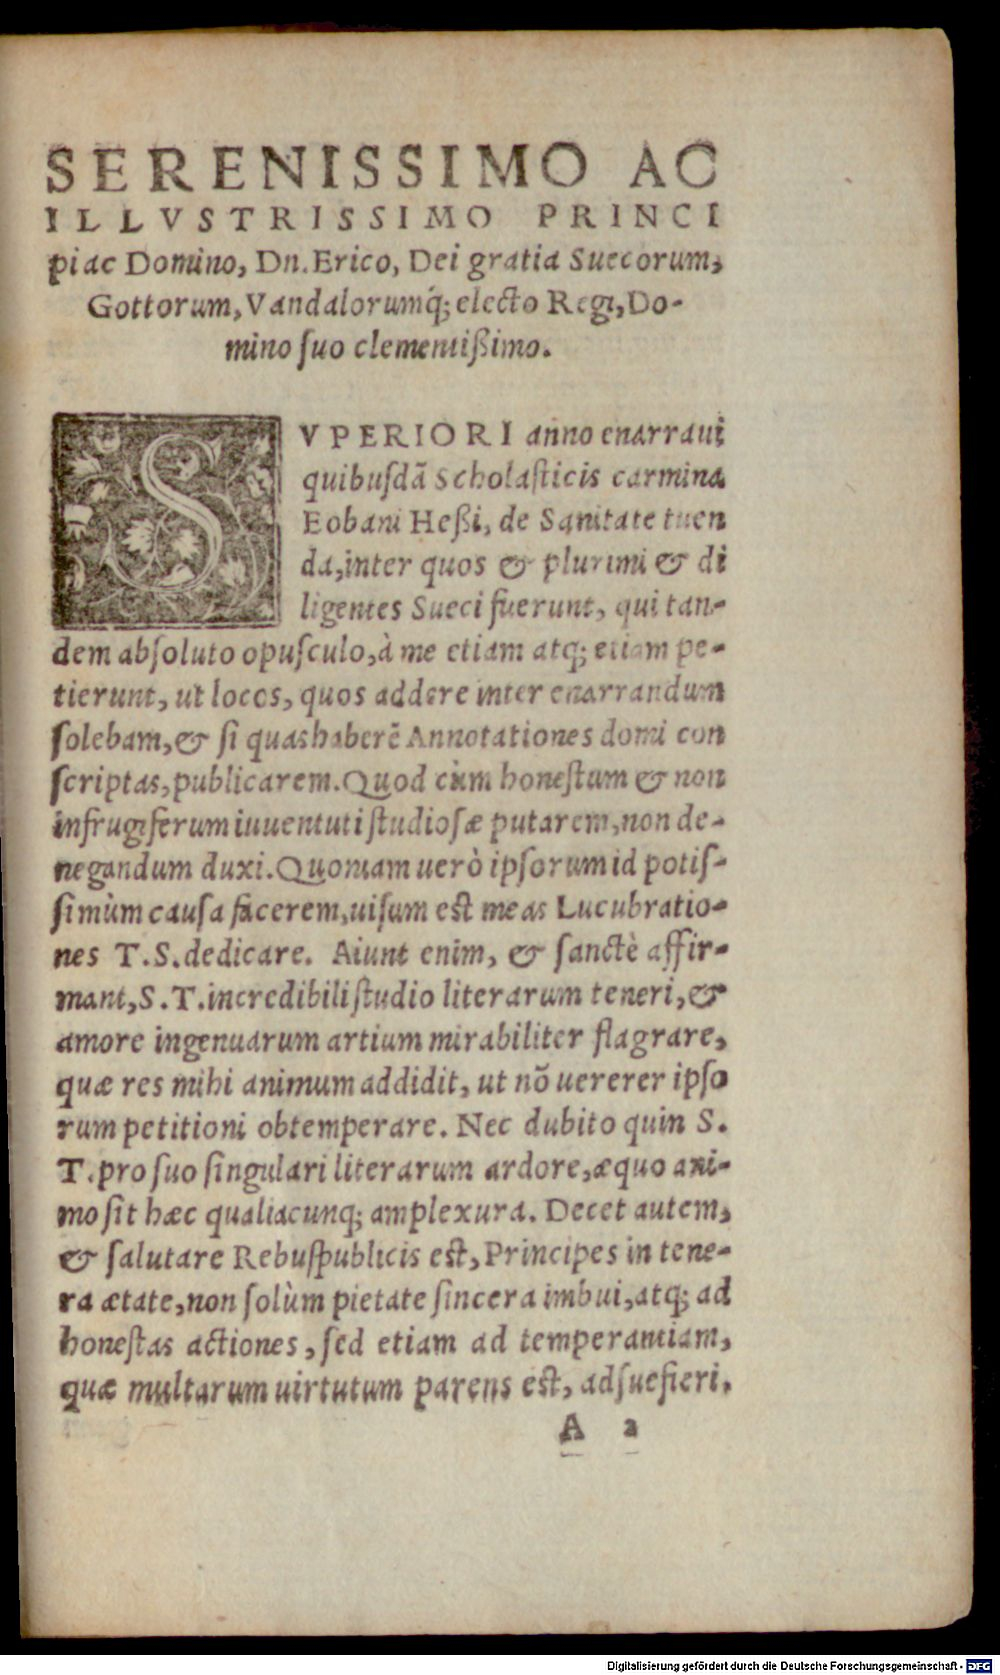 SERENISSIMO AC
ILLVSTRISSIMO PRINCI
pi ac Domino, Dn. Erico, Dei gratia Suecorum,
Gottorum, Vandalorumq́; electo Regi, Do-
mino ſuo clementißimo.
SVPERIORI anno enarraui
quibuſdā Scholaſticis carmina
Eobani Heßi, de Sanitate tuen
da, inter quos & plurimi & di
ligentes Sueci fuerunt, qui tan-
dem abſoluto opuſculo, à me etiam atq; etiam pe-
tierunt, ut locos, quos addere inter enarrandum
ſolebam, & ſi quas haberē Annotationes domi con
ſcriptas, publicarem. Quod cùm honeſtum & non
infrugiferum iuuentuti ſtudioſæ putarem, non de-
negandum duxi. Quoniam uerò ipſorum id potiſ-
ſimùm cauſa facerem, uiſum est meas Lucubratio-
nes T. S. dedicare. Aiunt enim, & ſanctè affir-
mant, S. T. incredibili ſtudio literarum teneri, &
amore ingenuarum artium mirabiliter flagrare,
quæ res mihi animum addidit, ut nō uererer ipſo
rum petitioni obtemperare. Nec dubito quin S.
T. pro ſuo ſingulari literarum ardore, æquo ani-
mo ſit hæc qualiacunq; amplexura. Decet autem,
& ſalutare Rebuſpublicis est, Principes in tene-
ra ætate, non ſolùm pietate ſincera imbui, atq; ad
honeſtas actiones, ſed etiam ad temperantiam,
quæ multarum uirtutum parens est, adſuefieri.
A 2
Digitalisierung gefördert durch die Deutsche Forschungsgemeinschaft - DFG